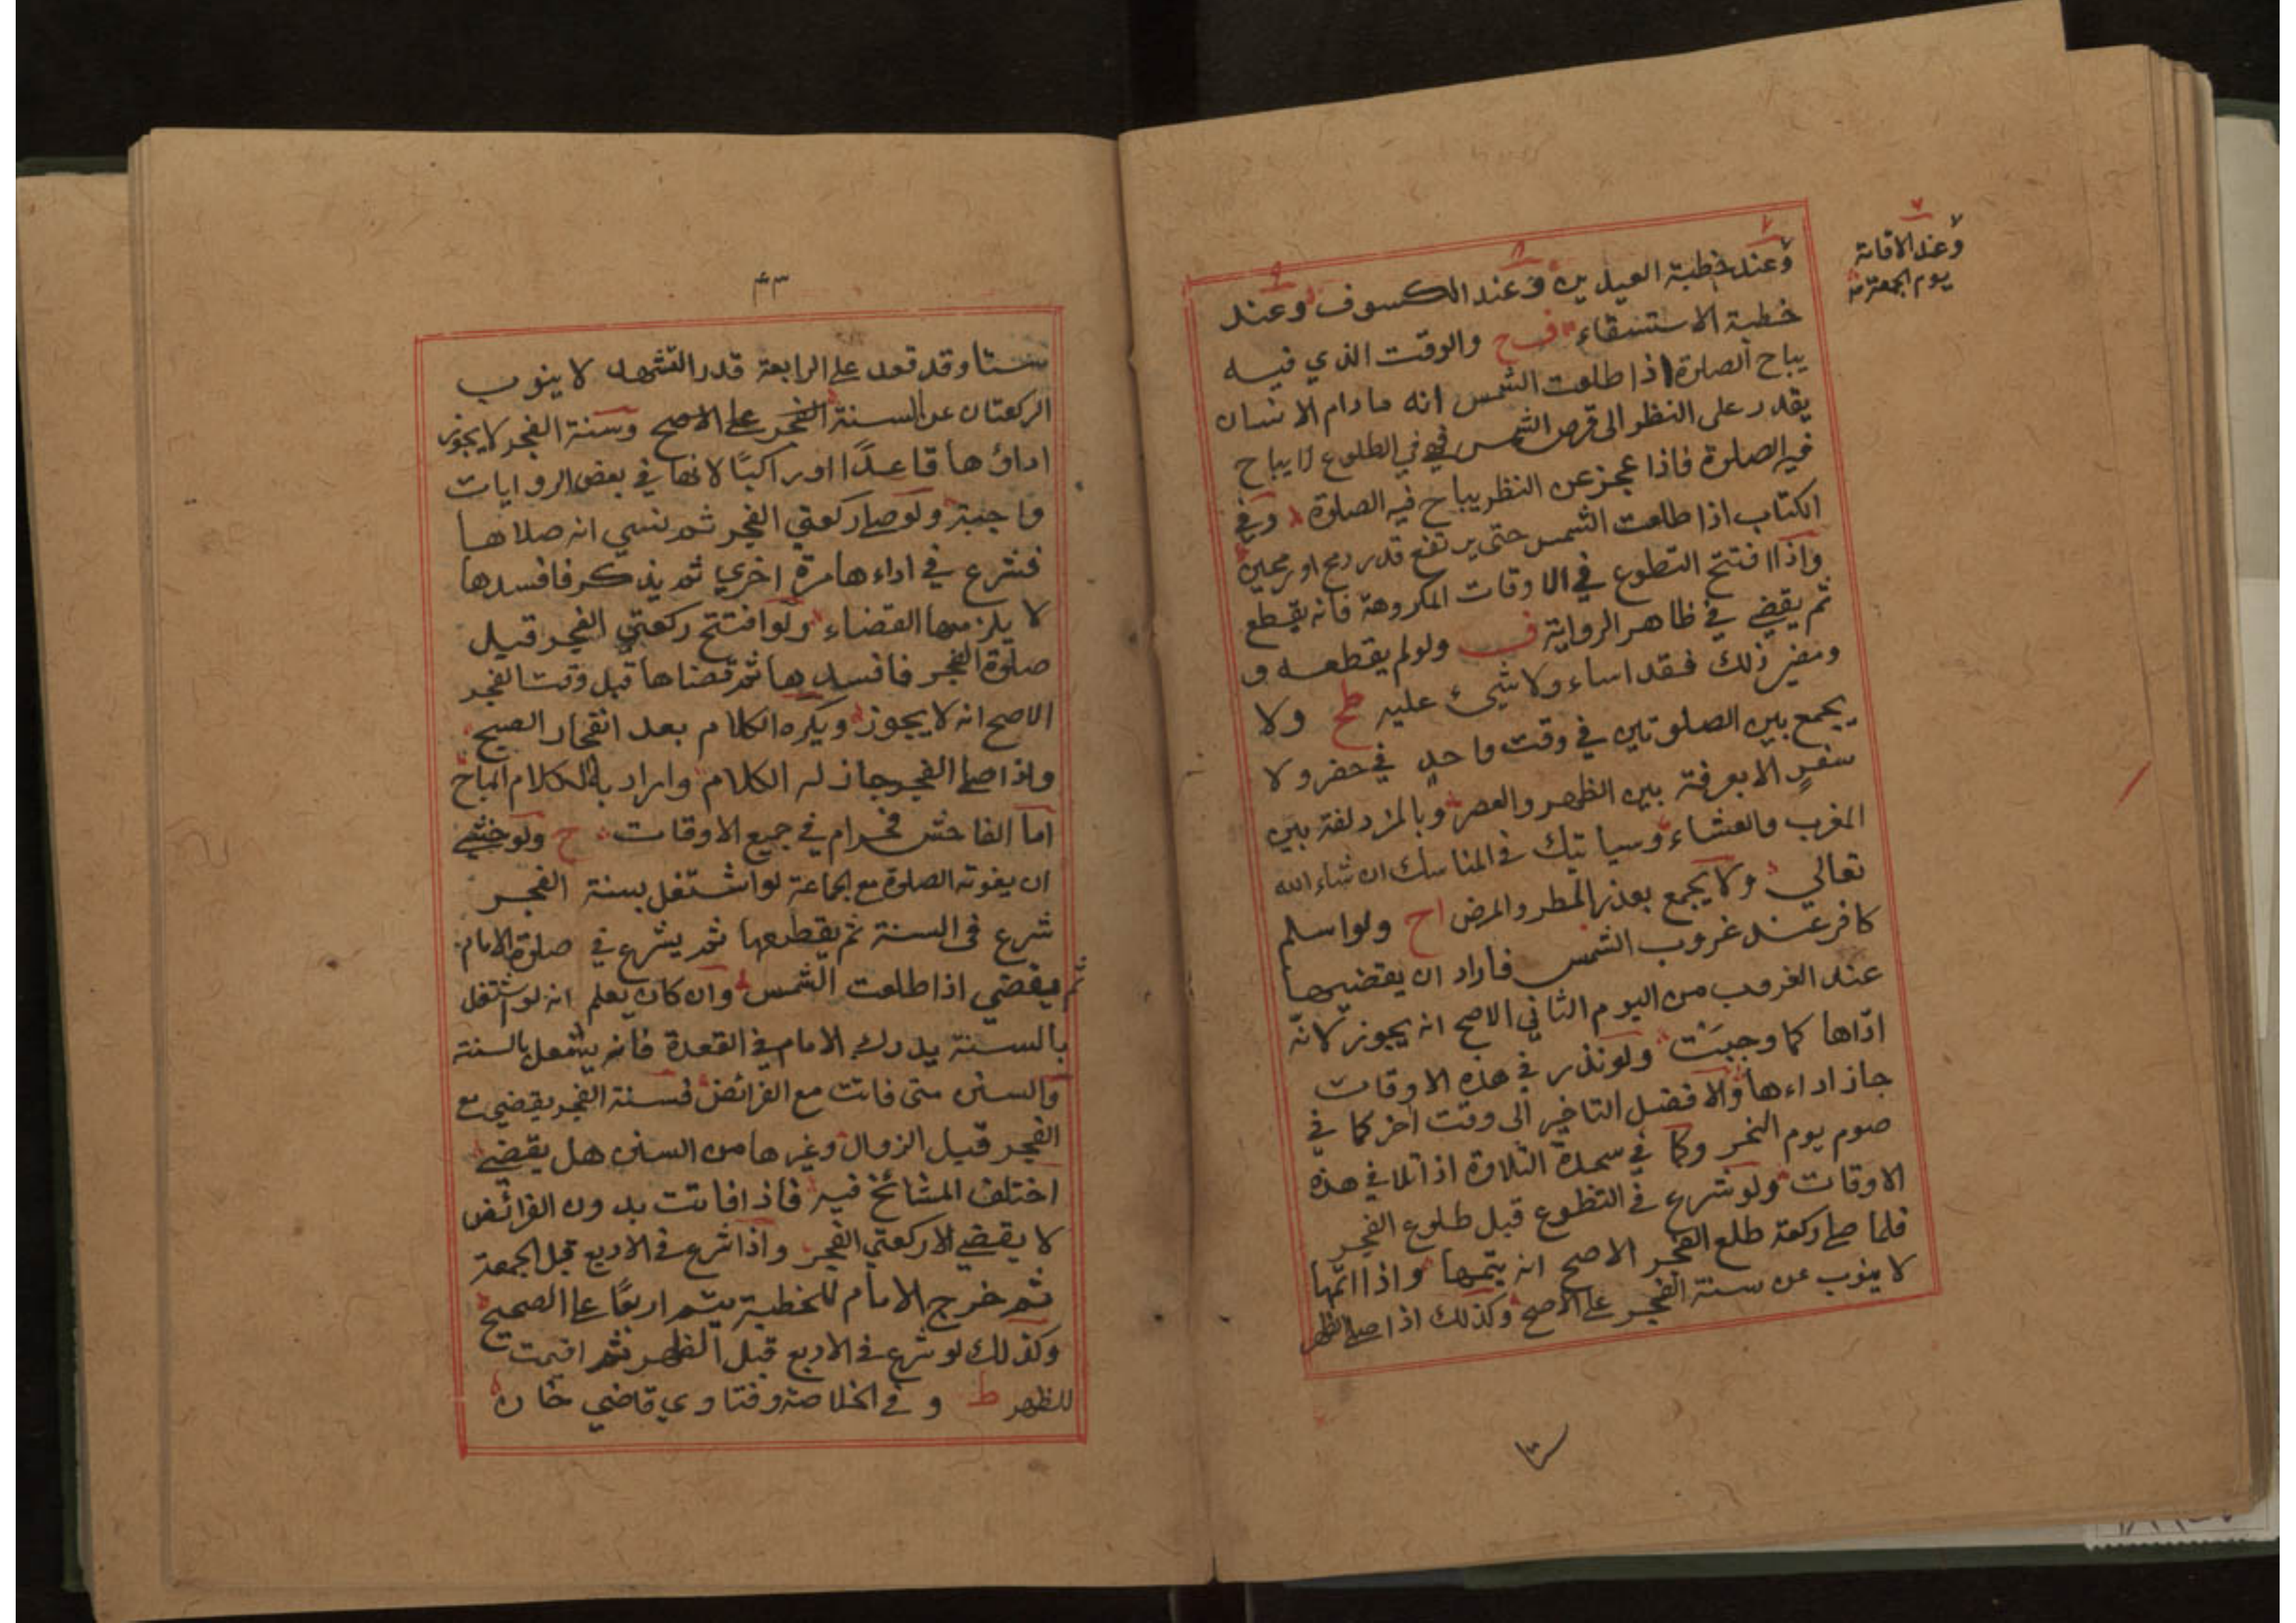 وعند الاقامة
يوم الجمعة
وعند خطبة العيدين وعند الكسوف وعند
خطبة الاستسقاء ف ح والوقت الذي فيه
يباح الصلوة اذا طلعت الشمس انه مادام الانسان
يقدر على النظر الى قرص الشمس فهي في الطلوع لا يباح
فيه الصلوة فاذا عجز عن النظر يباح فيه الصلوة وفي
الكتاب اذا طلعت الشمس حتى يرتفع قدر رمح او رمحين
واذا افتتح التطوع في الاوقات المكروهة فانه يقطع
ثم يقضي في ظاهر الرواية ف ولو لم يقطعه و
ومضى ذلك فقد اساء ولا شيئ عليه طح ولا
يجمع بين الصلوتين في وقت واحد في حضر ولا
سفر الا بعرفة بين الظهر والعصر وبالمزدلفة بين
المغرب والعشاء وسياتيك في المناسك ان شاء الله
تعالى ولا يجمع بعذر المطر والمرض اح ولو اسلم
كافر عند غروب الشمس فاراد ان يقضيها
عند الغروب من اليوم الثاني الاصح انه يجوز لانه
ادّاها كما وجبت ولو نذر في هذه الاوقات
جاز اداءها والافضل التاخير الى وقت اخر كما في
صوم يوم النحر وكما في سجدة التلاوة اذا تلا في هذه
الاوقات ولو شرع في التطوع قبل طلوع الفجر
فلما صلى ركعة طلع الفجر الاصح انه يتمها واذا اتمها
لا ينوب عن سنة الفجر على الاصح وكذلك اذا صلى الظهر
٤٣
ستا وقد قعد على الرابعة قدر التشهد لا ينوب
الركعتان عن السنة الفجر على الاصح وسنة الفجر لا يجوز
اداؤها قاعدًا او راكبًا لانها في بعض الروايات
واجبة ولو صلى ركعتي الفجر ثم نسي انه صلاها
فشرع في اداءها مرة اخري ثم يذكر فافسدها
لا يلزمها القضاء ولو افتتح ركعتي الفجر قبيل
صلوة الفجر فافسدها ثم قضاها قبل وقت الفجر
الاصح انه لا يجوز ويكره الكلام بعد انفجار الصبح
واذا صلى الفجر جاز له الكلام واراد بالكلام المباح
اما الفاحش فحرام في جميع الاوقات ح ولو خشي
ان يفوته الصلوة مع الجماعة لو اشتغل بسنة الفجر
شرع في السنة ثم يقطعها ثم يشرع في صلوة الامام
ثم يقضي اذا طلعت الشمس وان كان يعلم انه لو اشتغل
بالسنة يدرك الامام في القعدة فانه يشتغل بالسنة
والسنن متى فاتت مع الفرائض فسنة الفجر يقضي مع
الفجر قبيل الزوال وغيرها من السنن هل يقضي
اختلف المشائخ فيه فاذا فاتت بدون الفرائض
لا يقضي الا ركعتي الفجر واذا شرع في الاربع قبل الجمعة
ثم خرج الامام للخطبة يتم اربعًا على الصحيح
وكذلك لو شرع في الاربع قبل الظهر ثم اقيمت
للظهر ط و في الخلاصة وفتاوي قاضي خان